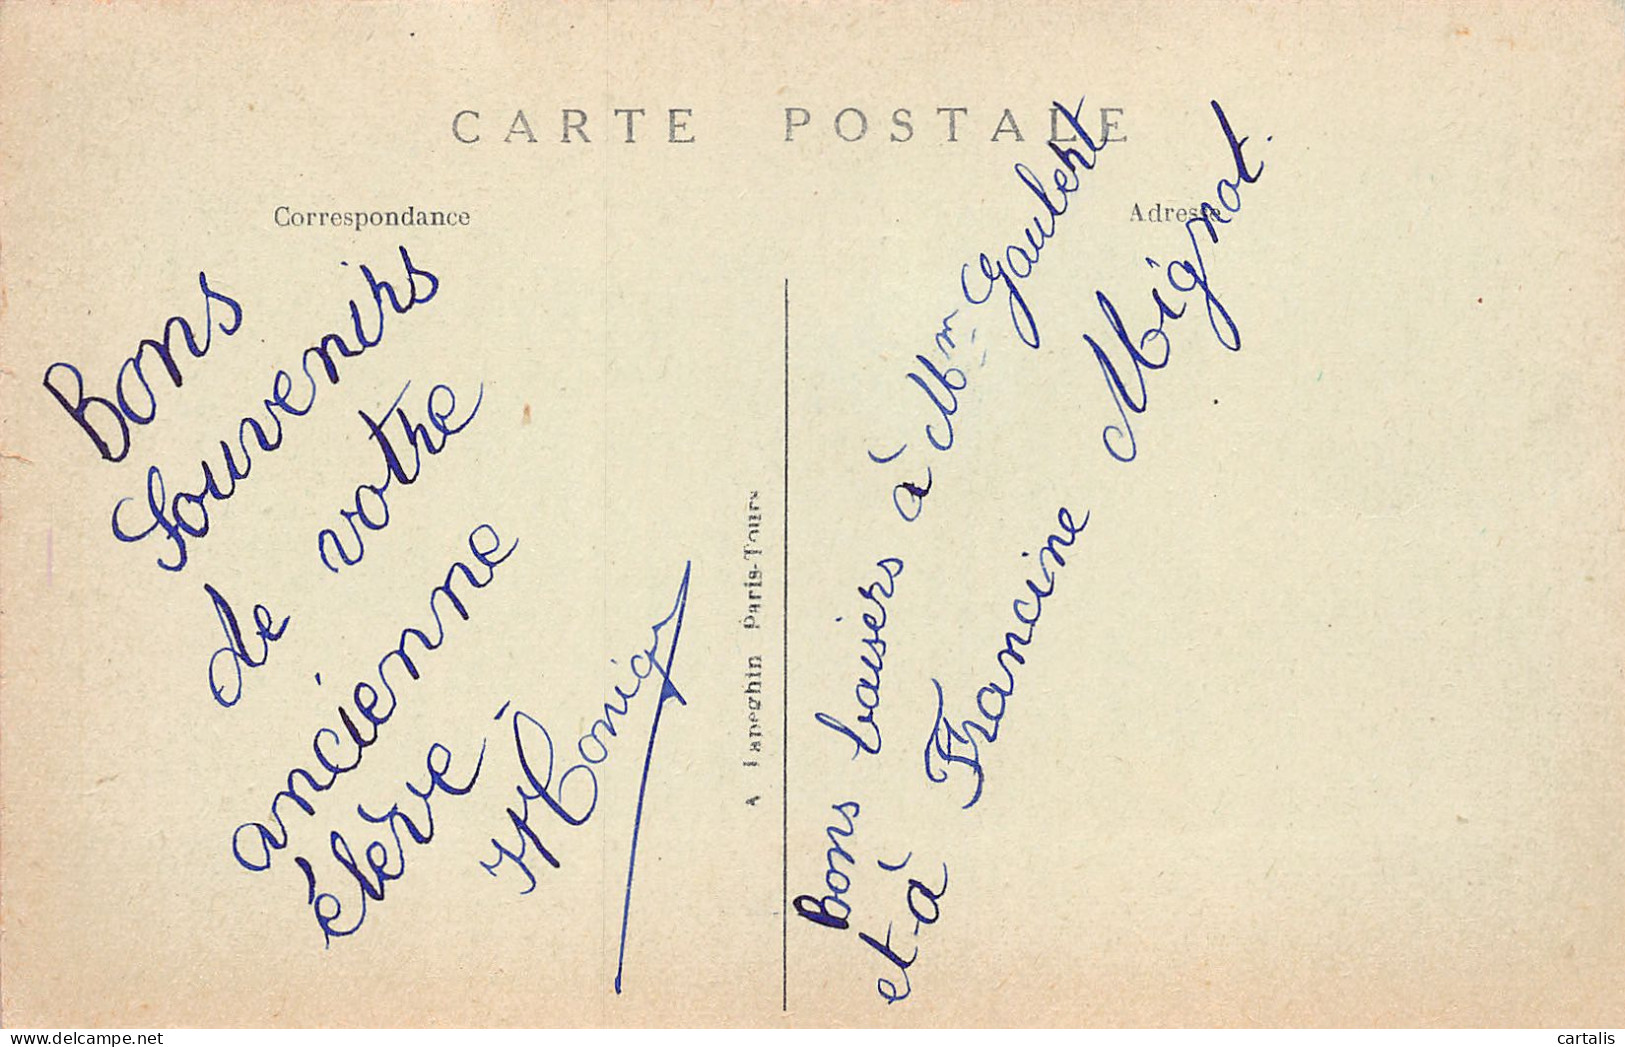 CARTE POSTALE
Correspondance
Adresse
Bons
Souvenirs
de votre
ancienne
élève
A Lapeghin Paris-Tours
Bons baisers à Mm Gaubert
et à Francine Mignot.
cartalis